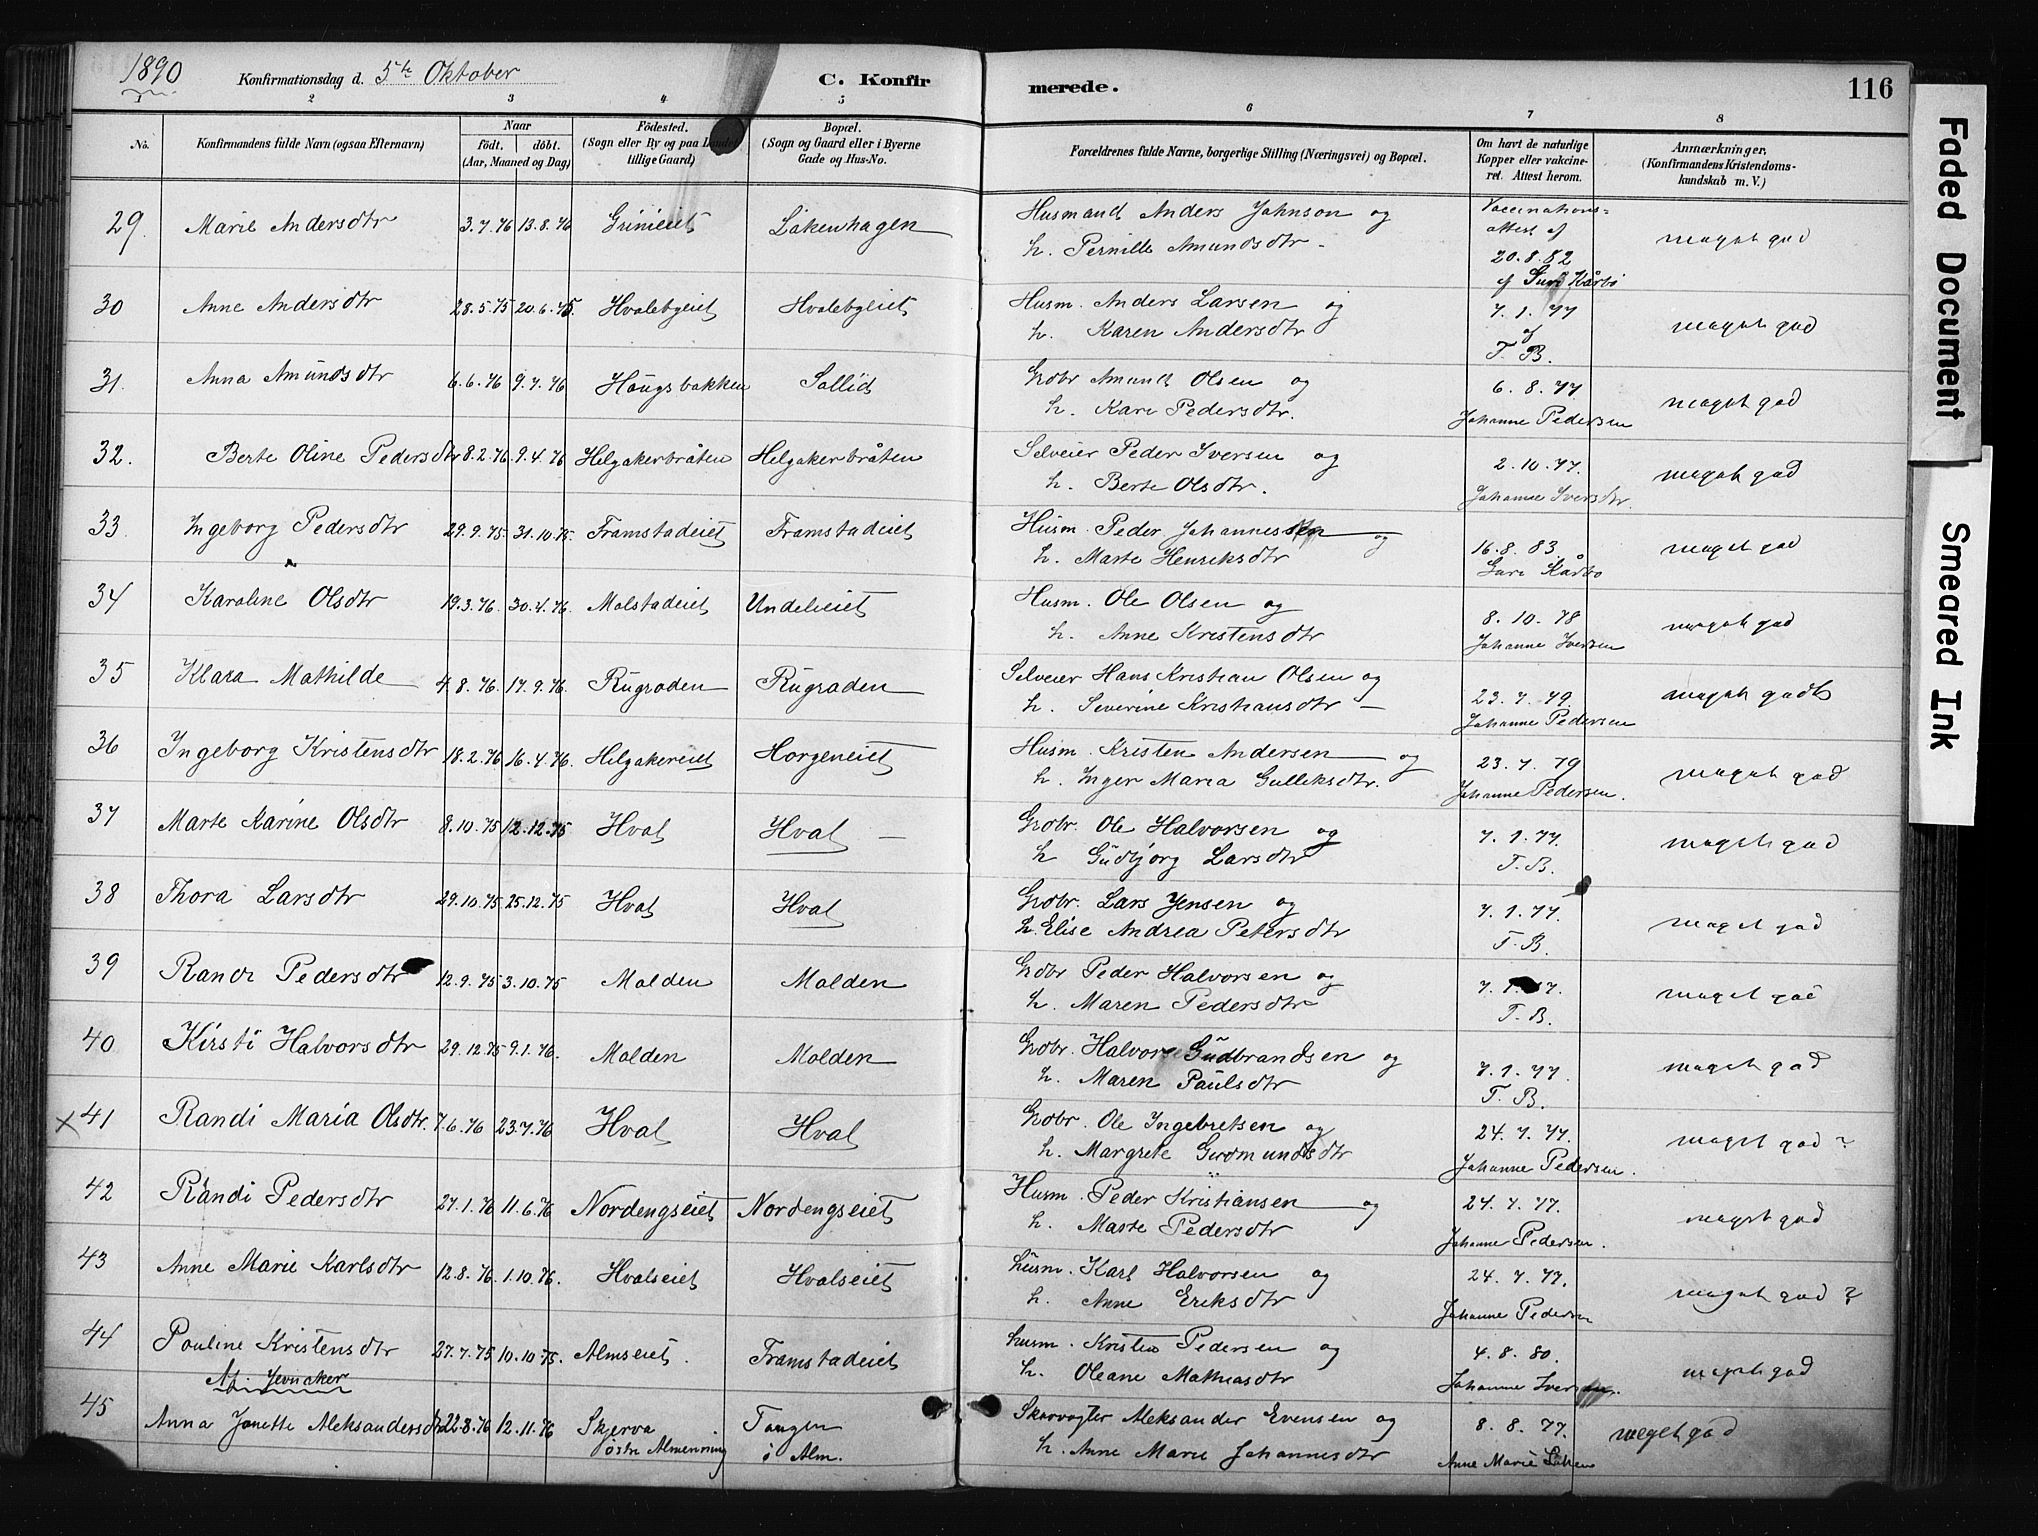 1890 Konfirmationsdag d. 5te Oktober C. Konfirmerede. 116
1 2 3 4 5 6 7 8
No. Konfirmandens fulde Navn (ogsaa Efternavn) Naar födt. döbt. (Aar, Maaned og Dag) Födested. (Sogn eller By og paa Landet tillige Gaard) Bopæl. (Sogn og Gaard eller i Byerne Gade og Hus-No. Forældrenes fulde Navne, borgerlige Stilling (Næringsvei) og Bopæl. Om havt de naturlige Kopper eller vakcineret. Attest herom. Anmærkninger, (Konfirmandens Kristendomskundskab m. V.)
29. Marie Andersdtr 3.7.76 13.8.76 Grinieiet Låkenhagen Husmand Anders Johnson og Vaccinations=
h. Pernille Amundsdtr - attest af meget god
20.8.82
af Guri Kårbø
30 Anne Andersdtr 28.5.75 20.6.75. Hvalebyeiet Hvalebyeiet Husm. Anders Larsen og 7.1.77
h. Karen Andersdtr af meget god
T. B.
31. Anna Amundsdtr 6.6.76 9.7.76 Haugsbakken Sollid Grdbr Amund Olsen og 6.8.77
h. Kari Pedersdtr. Johanne Pedersen meget god
32. Berte Oline Pedersdtr 8.2.76. 9.4.76 Helgakerbråten Helgakerbråten Selveier Peder Iversen og 2.10.77.
h. Berte Olsdtr. Johanne Iversdtr. meget god
33. Ingeborg Pedersdtr 29.9.75. 31.10.75. Framstadeiet Framstadeiet Husm. Peder Johannessen og
h. Marte Henriksdtr 16.8.83. Guri Kårbø meget god
34 Karoline Olsdtr 19.3.76. 30.4.76. Molstadeiet Undelieiet Husm. Ole Olsen og 8.10.78
h. Anne Kristensdtr Johanne Iversen meget god
35 Klara Mathilde 4.8.76. 17.9.76. Rugraden Rugraden Selveier Hans Kristian Olsen og 23.7.79.
h. Severine Kristiansdtr - Johanne Pedersen meget godt
36 Ingeborg Kristensdtr 18.2.76 16.4.76. Helgakereiet Horgeneiet Husm. Kristen Andersen og 23.7.79
h. Inger Maria Gulleksdtr. Johanne Pedersen. meget god
37 Marte Karine Olsdtr 8.10.75 12.12.75 Hval Hval - Grdbr. Ole Halvorsen og 7.1.77.
h Gudbjorg Larsdtr T.B. meget god
38 Thora Larsdtr 29.10.75 25.12.75 Hval Hval Grdbr. Lars Jensen og 7.1.77.
h. Elise Andrea Petersdtr T.B. meget god
39 Randi Pedersdtr 12.9.75 3.10.75 Molden Molden Grdbr Peder Halvorsen og 7.1.77.
h. Maren Pedersdtr T.B. meget god
40 Kirsti Halvorsdtr 29.12.75 9.1.76. Molden Molden Grdbr. Halvor Gudbrandsen og 7.1.77.
h. Maren Paulsdtr T. B. meget god
x 41 Randi Maria Olsdtr. 7.6.76 23.7.76 Hval Hval Grdbr. Ole Ingebretsen og 24.7.77.
h. Margrete Gudmundsdtr Johanne Pedersen. meget god?
42 Randi Pedersdtr 27.1.76 11.6.76 Nordengseiet Nordengseiet Husm. Peder Kristiansen og 24.7.77.
h. Marte Pedersdtr Johanne Pedersen. meget god
43 Anne Marie Karlsdtr 12.8.76. 1.10.76. Hvalseiet Hvalseiet husm. Karl Halvorsen og 24.7.77.
h. Anne Eriksdtr Johanne Pedersen meget god?
44 Pauline Kristensdtr 27.7.75 10.10.75. Almseiet. Framstadeiet husm. Kristen Pedersen og 4.8.80.
h. Oleane Mathiasdtr Johanne Iversen. meget god
Af. Jevnaker
45 Anna Janette Aleksandersdtr 22.8.76 12.11.76 Skjerva Tangen Skovvogter Aleksander Evensen og 8.8.77. meget god
østre Almenning ö Alm. h. Anne Marie Johannesdtr Anne Marie
Faded Document
Smeared Ink